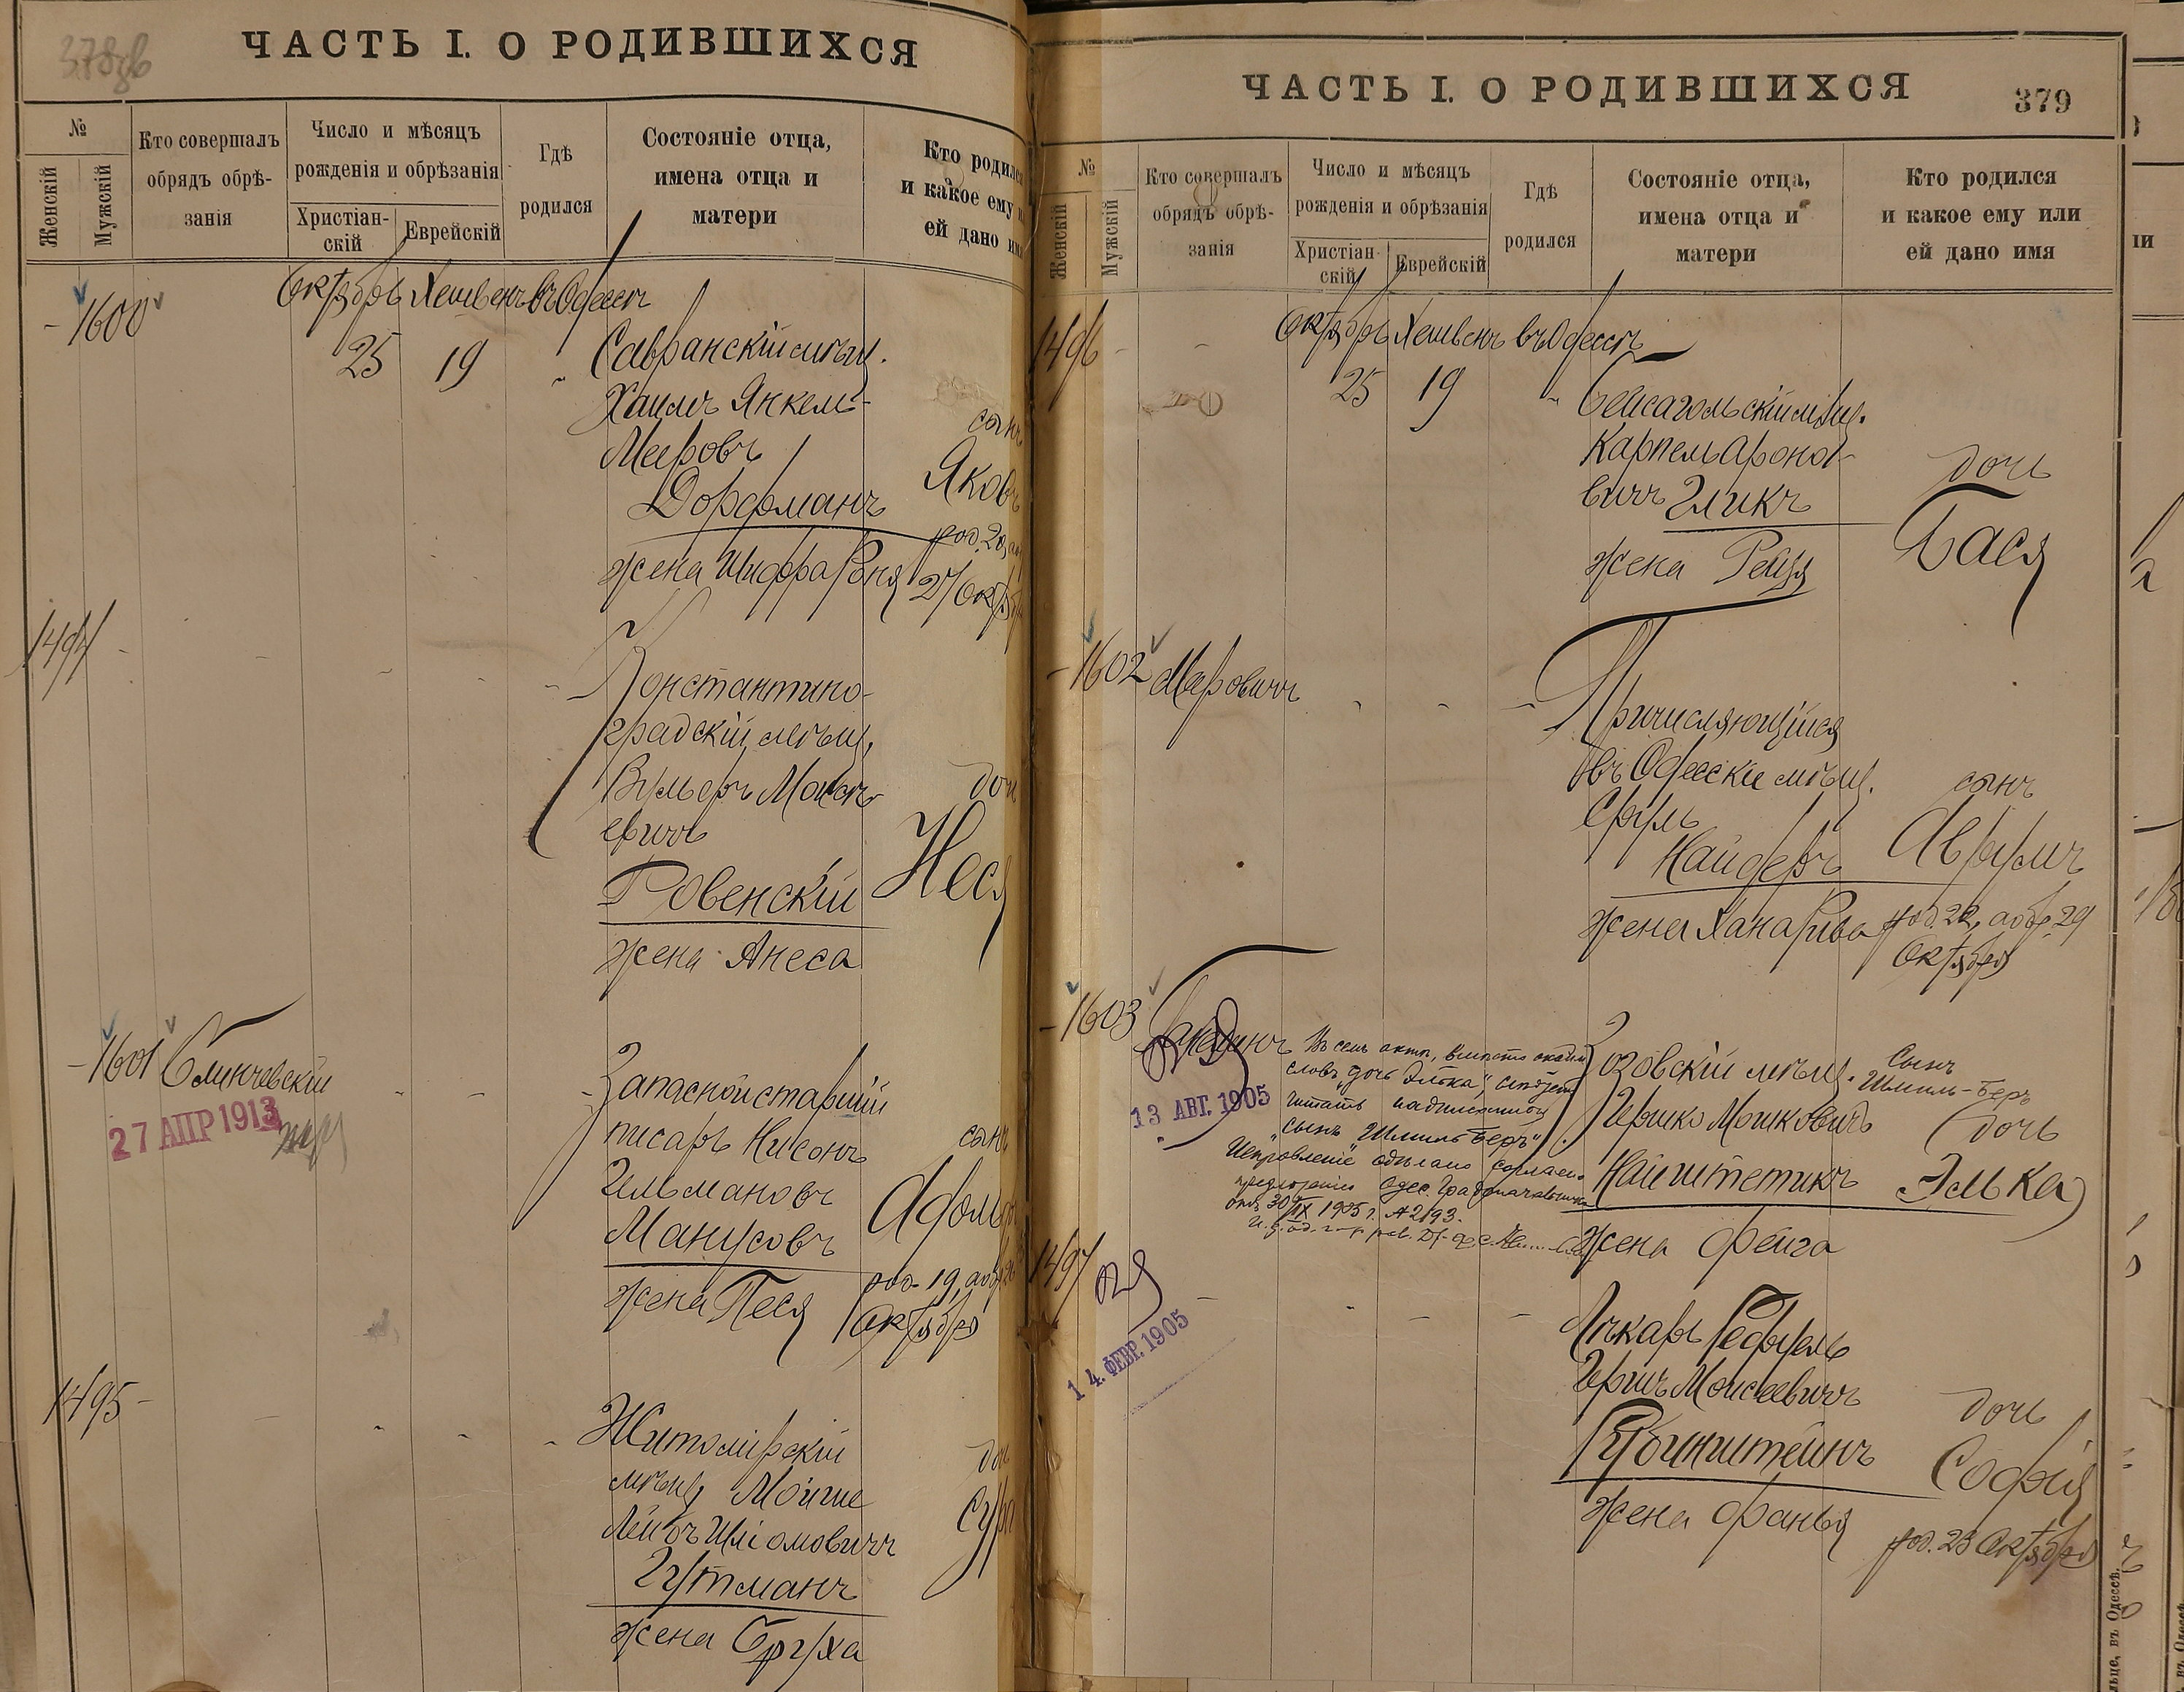 378об
ЧАСТЬ I. О РОДИВШИХСЯ
№
Женскій
Мужскій
Кто совершалъ
обрядъ обрѣ-
занія
Число и мѣсяцъ
рожденія и обрѣзанія
Христіан-
скій
Еврейскій
Гдѣ
родился
Состояніе отца,
имена отца и
матери
Кто родился
и какое ему и
ей дано имя
Октябрь Хешвенъ въ Одессѣ
1600
25 19
Савранскій мѣщ.
Хаимъ Янкель
Мееровъ
Дорфманъ
жена Шифра Роня
сынъ
Яковъ
род. 20,
27 Октября
1494
Константино-
градскій мѣщ.
Вульфъ Моисѣ-
евичъ
Ровенскій
жена Анеса
дочь
Неся
1601
Блинчевскій
27 АПР 1913
Запасной старшій
писарь Нисонъ
Гильмановъ
Манусовъ
жена Песя
сынъ
Адольфъ
род. 19, а обр. 26
Октября
1495
Житомірскій
мѣщ. Мойше
Лейбъ Шліомовичъ
Гутманъ
жена Бруха
дочь
Сура
ЧАСТЬ I. О РОДИВШИХСЯ
379
№
Женскій
Мужскій
Кто совершалъ
обрядъ обрѣ-
занія
Число и мѣсяцъ
рожденія и обрѣзанія
Христіан-
скій
Еврейскій
Гдѣ
родился
Состояніе отца,
имена отца и
матери
Кто родился
и какое ему или
ей дано имя
Октябрь Хешвенъ въ Одессѣ
1496
25 19
Бейсагольскій мѣщ.
Карпель Ароно-
вичъ Гликъ
жена Рейзя
дочь
Бася
1602
Меровичъ
Причисляющійся
въ Одесскіе мѣщ.
Сруль
Найдеръ
жена Хана Рива
сынъ
Аврумъ
род. 22, а обр. 29
Октября
1603
13 АВГ. 1905
Въ семъ актѣ, вмѣсто
словъ "дочь Элька", слѣдуетъ
читать
"сынъ "Шмиль Беръ".
Исправленіе сдѣлано согласно
предложенія Одес. Градоначальника
отъ 30/IX 1905 г. № 2193.
Озовскій мѣщ.
Гершко Мошковичъ
Найштетикъ
жена Фейга
Сынъ
Шмиль-Беръ
(дочь
Элька)
1497
14. ФЕВР. 1905
Лѣкарь Гедуель
Гершъ Моисеевичъ
Рубинштейнъ
жена Фаньця
дочь
Софія
род. 23 Октября